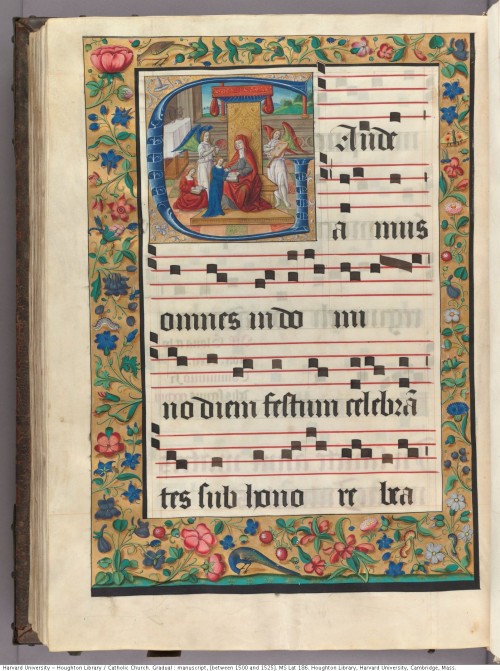 GAude
a mus
omnes in do mi
no diem festum celebrā
tes sub hono re bea
Harvard University - Houghton Library / Catholic Church. Gradual : manuscript, [between 1500 and 1525]. MS Lat 186. Houghton Library, Harvard University, Cambridge, Mass.